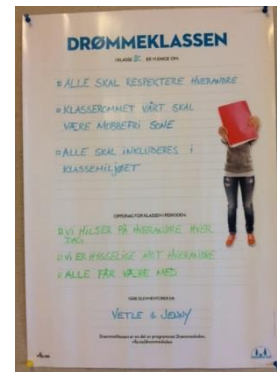 DRØMMEKLASSEN
I KLASSE ER VI ENIGE OM:
ALLE SKAL RESPEKTERE HVERANDRE
KLASSEROMMET VÅRT SKAL
VÆRE MOBBEFRI SONE
ALLE SKAL INKLUDERES I
KLASSEMILJØET
OPPDRAG FOR KLASSEN I PERIODEN:
VI HILSER PÅ HVERANDRE HVER
DAG
VI ER HYGGELIGE MOT HVERANDRE
ALLE FÅR VÆRE MED
VÅRE ELEVMENTORER ER:
VETLE & JENNY
Drømmeklassen er en del av programmet Drømmeskolen.